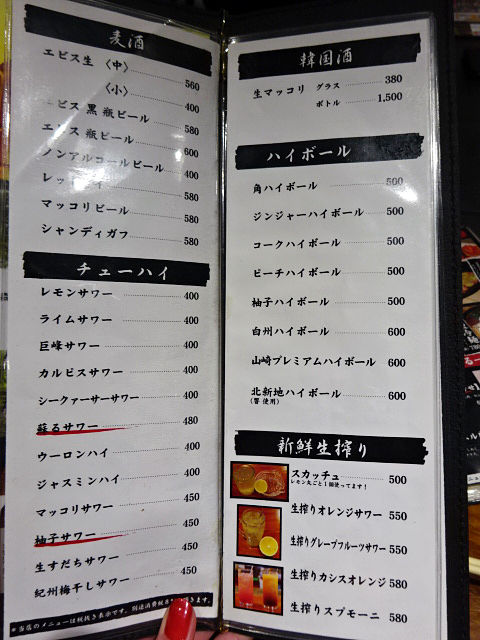 麦酒
エビス生 〈中〉 560
〈小〉 400
エビス 黒 瓶ビール 580
エビス 瓶ビール 600
ノンアルコールビール 400
580
マッコリビール 580
シャンディガフ 580
チューハイ
レモンサワー 400
ライムサワー 400
巨峰サワー 400
カルピスサワー 400
シークァーサーサワー 400
蘇るサワー 480
ウーロンハイ 400
ジャスミンハイ 400
マッコリサワー 450
柚子サワー 450
生すだちサワー 450
紀州梅干しサワー 450
※当店のメニューは税抜き表示です。別途消費税を きます。
韓国酒
生マッコリ グラス 380
ボトル 1,500
ハイボール
角ハイボール 500
ジンジャーハイボール 500
コークハイボール 500
ピーチハイボール 500
柚子ハイボール 500
白州ハイボール 600
山崎プレミアムハイボール 600
北新地ハイボール 600
(響 使用)
新鮮生搾り
スカッチュ 500
レモン丸ごと1個使ってます!
生搾りオレンジサワー 550
生搾りグレープフルーツサワー 550
生搾りカシスオレンジ 580
生搾りスプモーニ 580